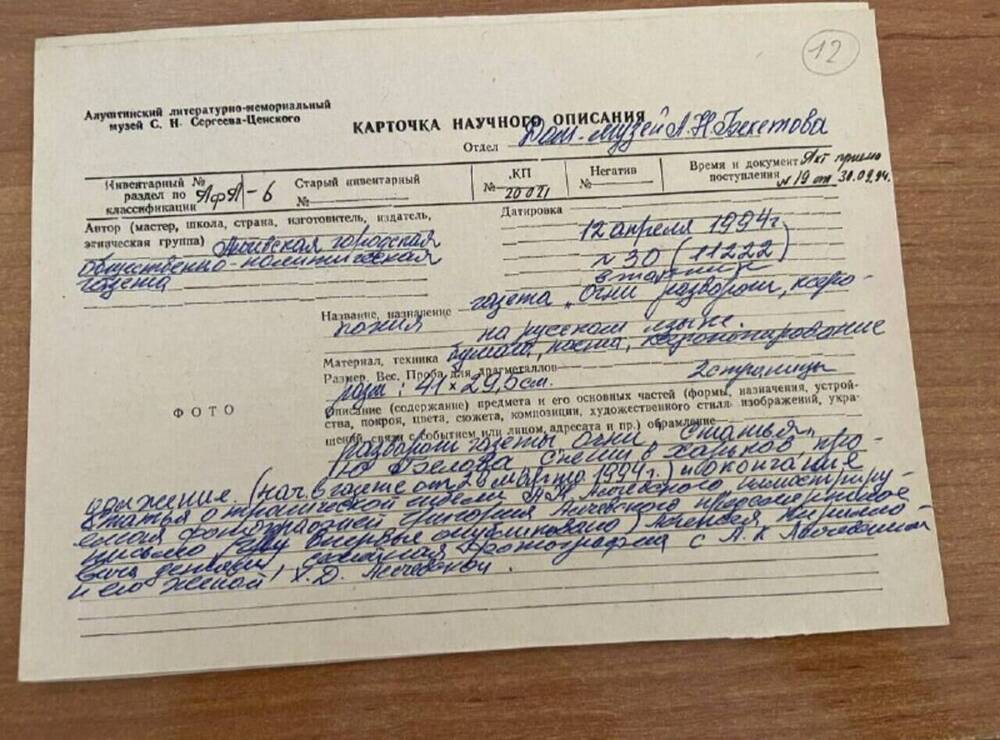 12
Алуштинский литературно-мемориальный
музей С. Н. Сергеева-Ценского
КАРТОЧКА НАУЧНОГО ОПИСАНИЯ
Отдел Дом-музей А.Н.Бекетова
Инвентарный №
раздел по
классификации АфА-6
Старый инвентарный
№
КП
№ 20021
Негатив
№
Время и документ Акт приема
поступления №19 от 30.09.94.
Автор (мастер, школа, страна, изготовитель, издатель,
этническая группа) городская
общественно-политическая
газета
Датировка
12 апреля 1994г
№ 30 (11222)
вторник
Название, назначение газета „Огни разворот, ксеро-
копия на русском языке.
Материал, техника бумага, паста, ксерокопирование
Размер, Вес. Проба для драгметаллов 2 страницы
разм: 41 × 29,5 см.
ФОТО
Описание (содержание) предмета и его основных частей (формы, назначения, устрой-
ства, покроя, цвета, сюжета, композиции, художественного стиля изображений, укра-
шений, связи с событием или лицом, адресата и пр.) обрамление
разворот газеты „Огни", статья
Ю. в Харьков, про-
должение. (нач. в газете от 26 марта 1994г.) и окончание
статьи о трагической гибели А.К. Алчевского иллюстриру
емая фотографией Григория Алчевского предсмертное
письмо впервые опубликовано) Алексея Кирилло-
вича фотография с А.К Алчевским
и его женой, Х.Д. Алчевской.